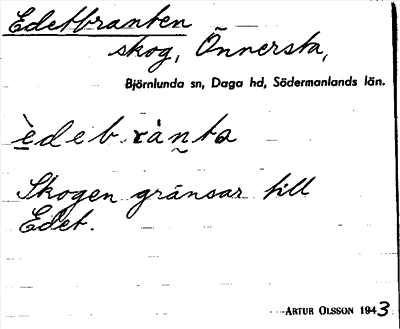 Edetbranten
skog, Önnersta,
Björnlunda sn, Daga hd, Södermanlands län.
èdebrànta
Skogen gränsar till
Edet.
ARTUR OLSSON 1943